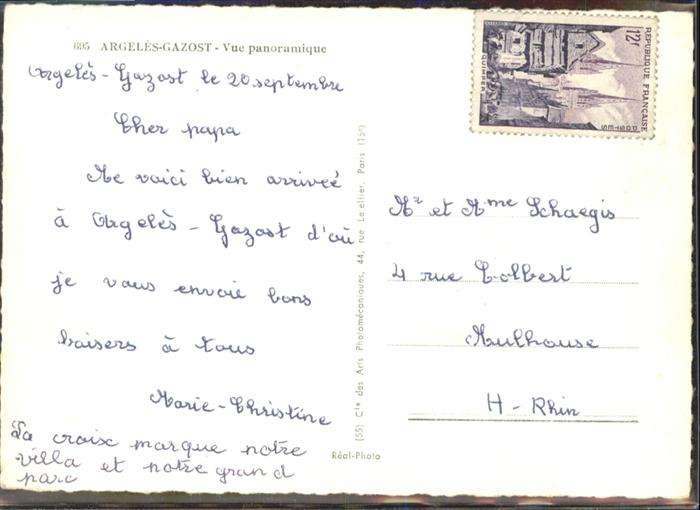 695 ARGELÈS-GAZOST - Vue panoramique
Argelès - Gazost le 20 septembre
Cher papa
Me voici bien arriveé
à Argelès - Gazost d'où
je vous envoie bons
baisers à tous
Marie - Christine
La croix marque notre
villa et notre grand
parc
(55) Cie des Arts Photomécaniques, 44, rue Letellier, Paris (15e)
Réal-Photo
RÉPUBLIQUE FRANÇAISE
POSTES
12F
QUIMPER
Mr et Mme Schaegis
4 rue Colbert
Mulhouse
H - Rhin